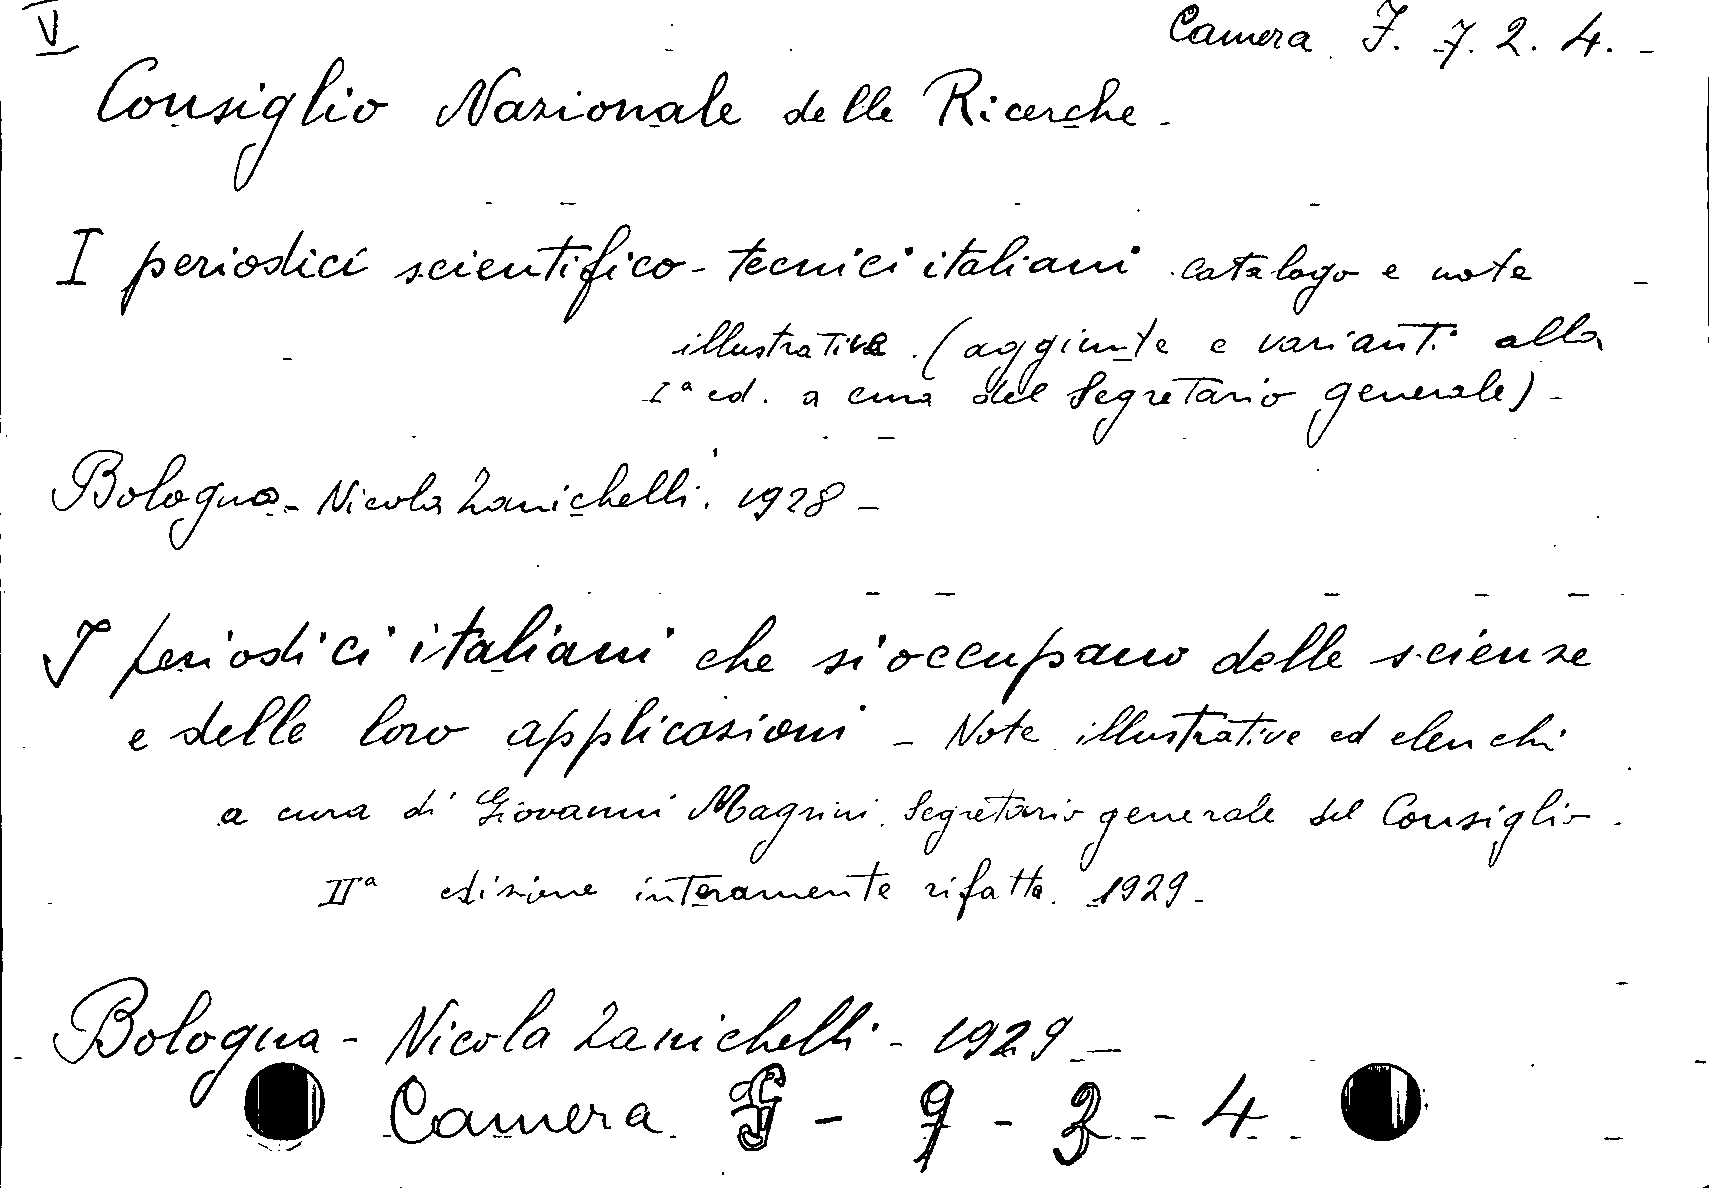 V
Camera I. 7. 2. 4. -
Consiglio Nazionale delle Ricerche.
I periodici scientifico-tecnici italiani catalogo e note
illustrative. (aggiunte e varianti alla
Iª ed. a cura del Segretario generale) -
Bologna - Nicola Zanichelli. 1928 -
I periodici italiani che si occupano delle scienze
e delle loro applicazioni - Note illustrative ed elenchi
a cura di Giovanni Magrini. Segretario generale del Consiglio.
IIª edizione interamente rifatta. 1929 -
Bologna - Nicola Zanichelli - 1929 -
Camera - - - 4